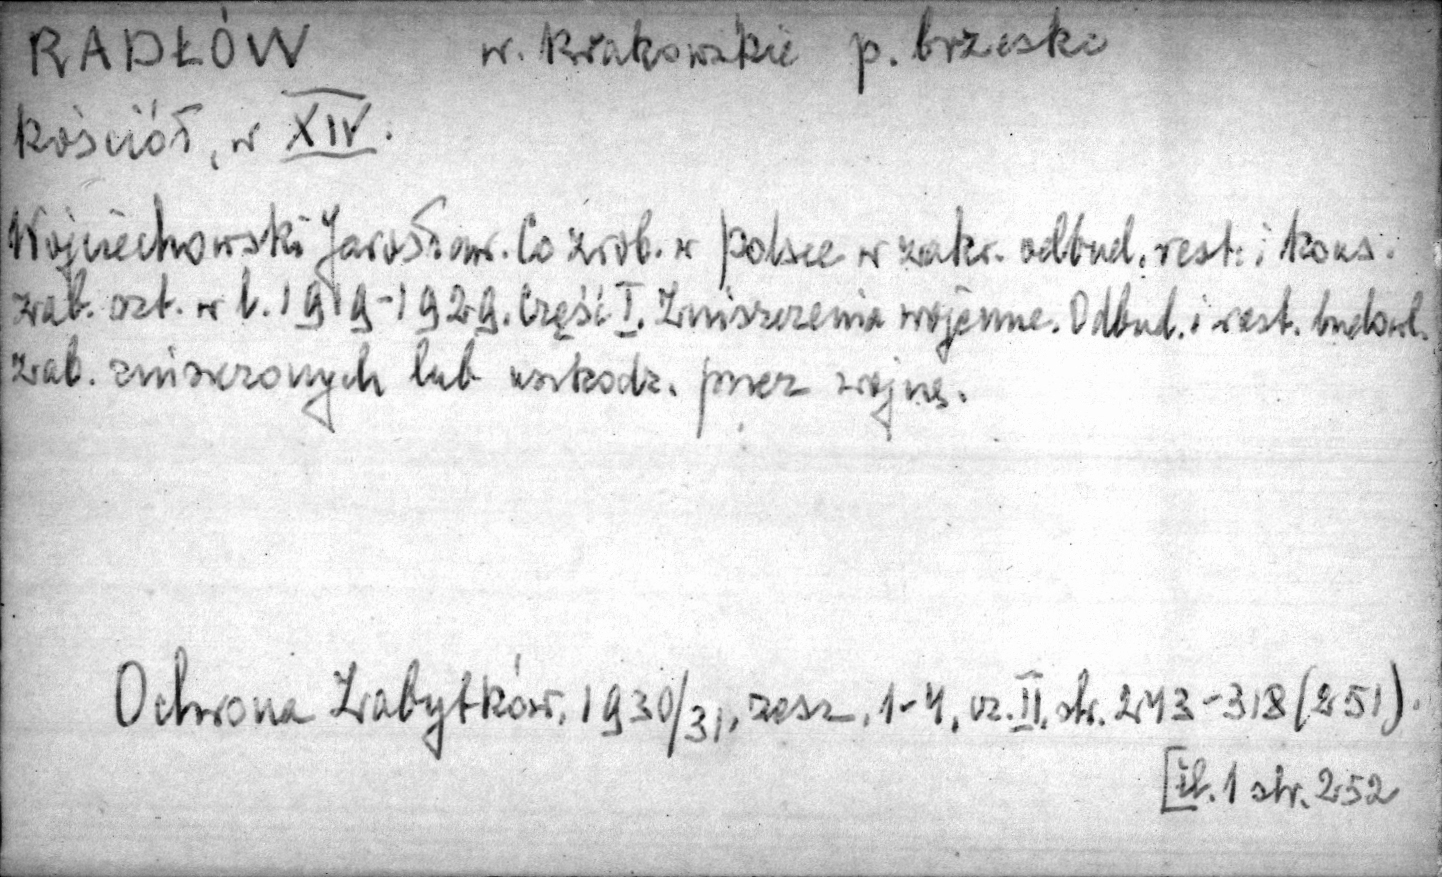 RADŁÓW w. krakowskie p. brzeski
Kościół, w XIV.
Wojciechowski Jarosław. Co zrob. w Polsce w zakr. odbud. rest. i kons.
zab. szt. w l. 1919-1929. Część I. Zniszczenia wojenne. Odbud. i rest. budowl.
zab. zniszczonych lub uszkodz. przez wojnę.
Ochrona Zabytków, 1930/31, zesz. 1-4, cz. II, str. 243-318 (251).
[il. 1 str. 252